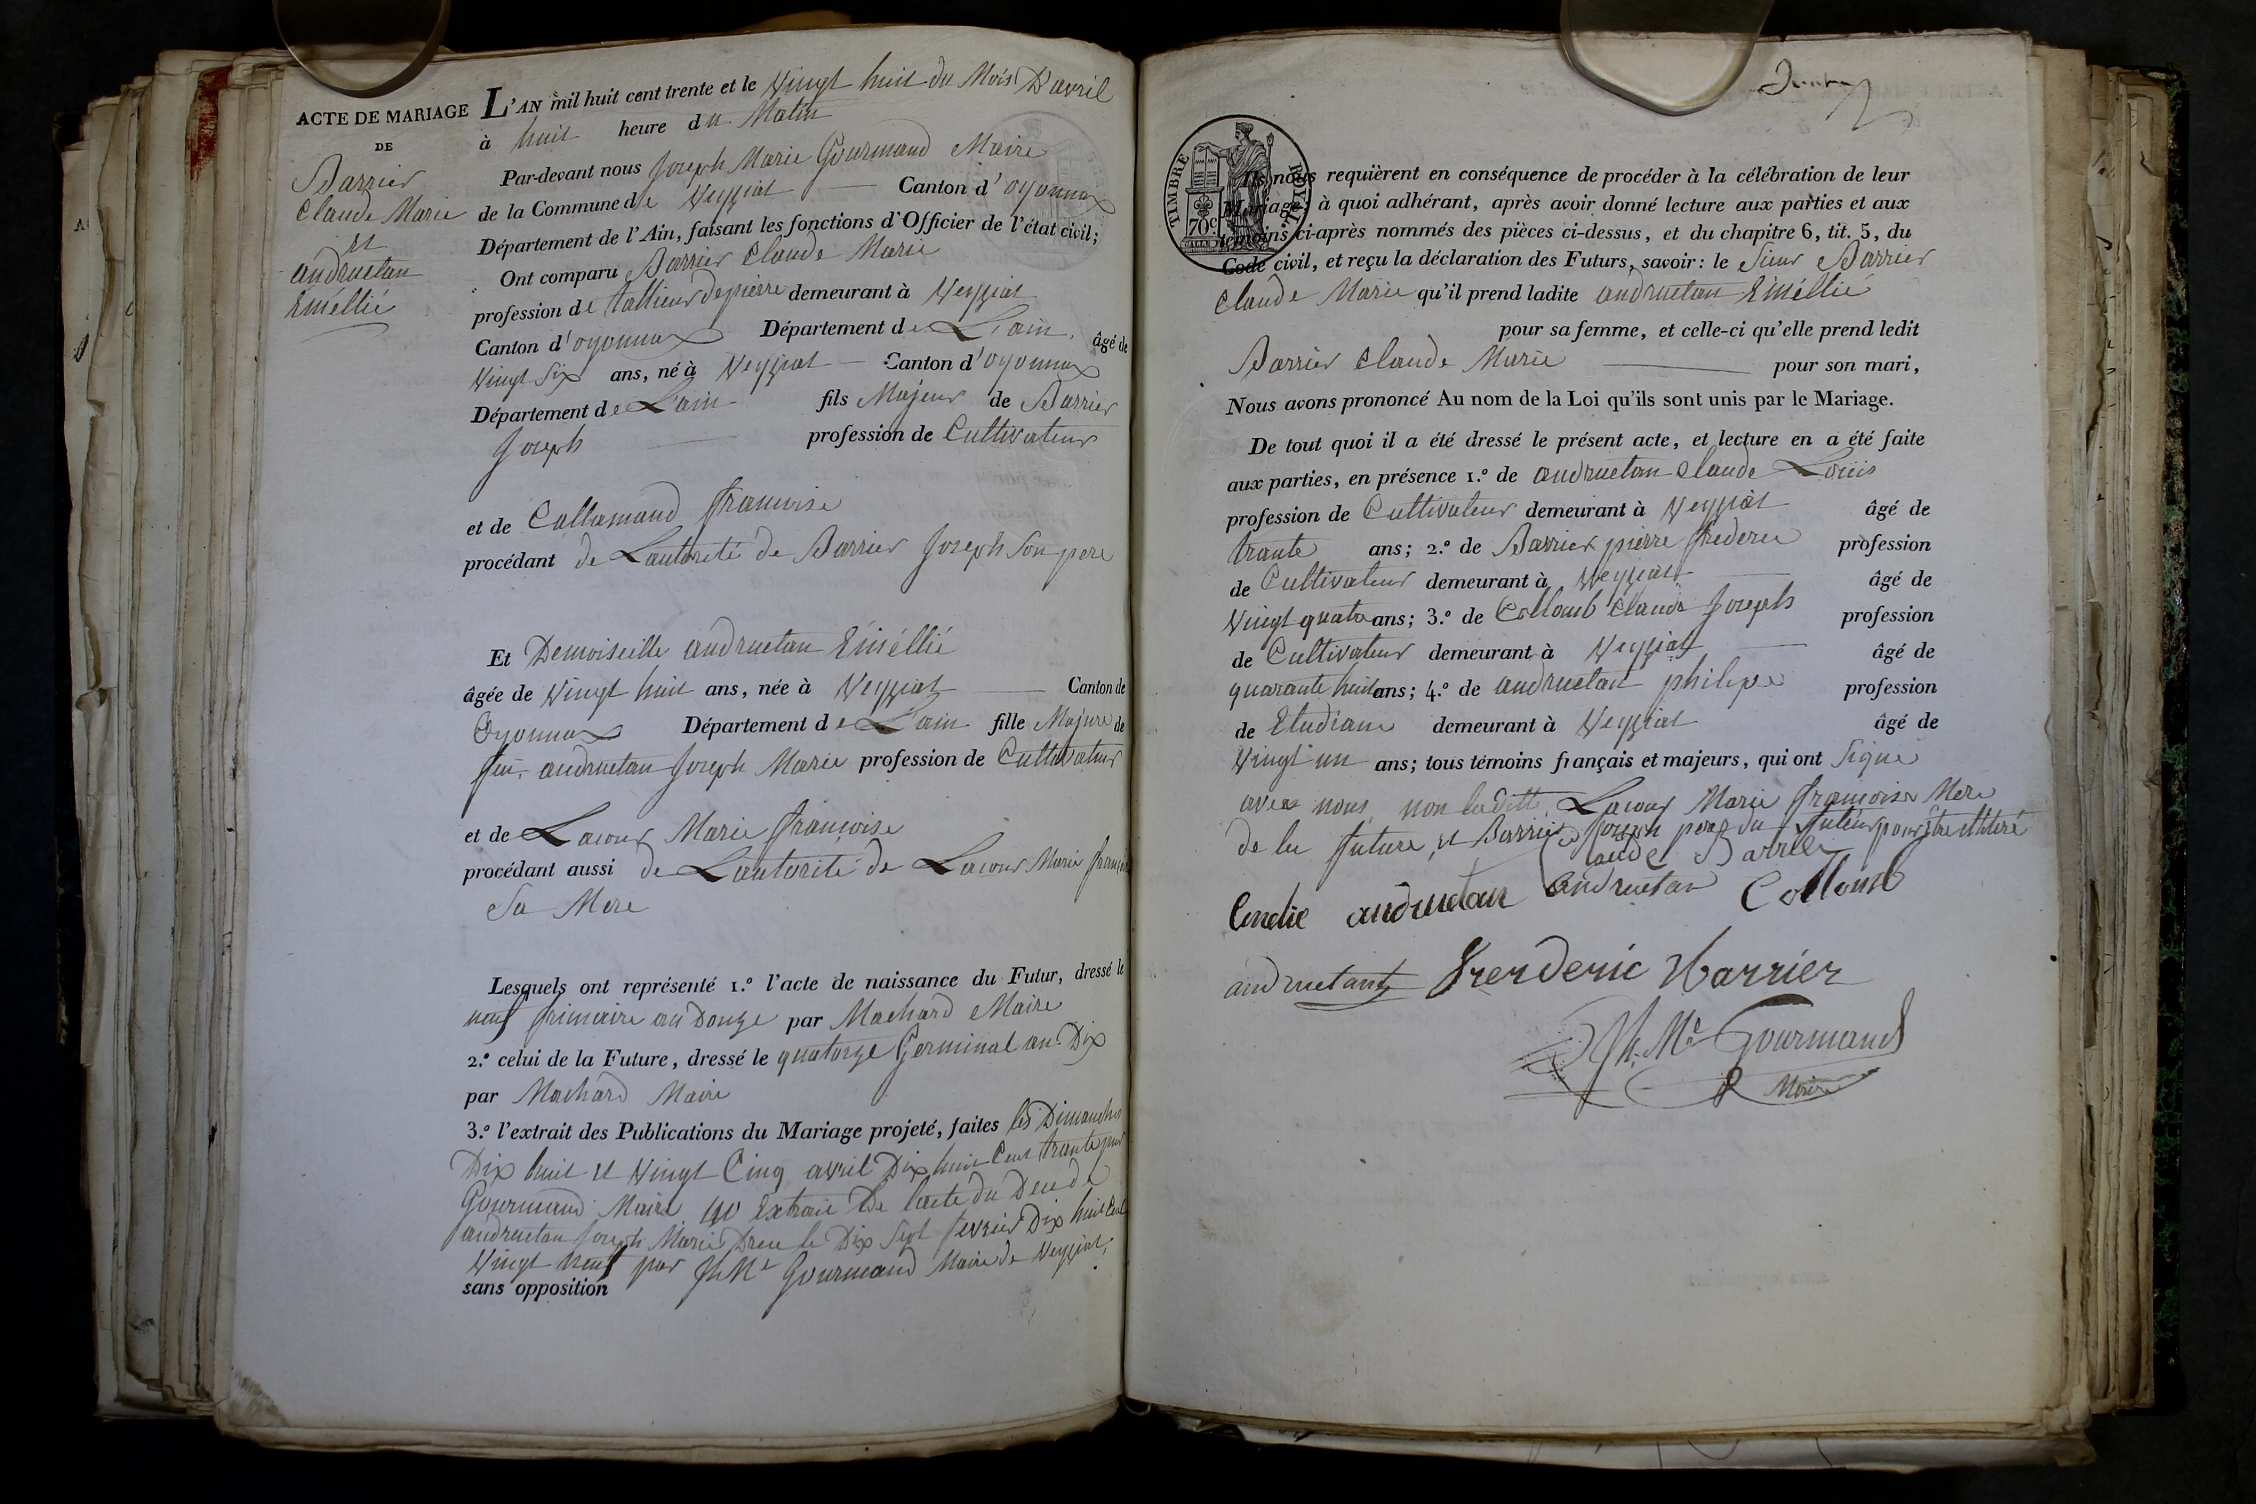 ACTE DE MARIAGE
DE
Barrier
Claude Marie
et
andruetan
Emellié
L'AN mil huit cent trente et le Vingt huit du Mois D'avril
à huit heure du Matin
Par-devant nous Joseph Marie Gourmand Maire
de la Commune de Veyziat Canton d'oyonnax
Département de l'Ain, faisant les fonctions d'Officier de l'état civil;
Ont comparu Barrier Claude Marie
profession de tallieur de pierre demeurant à Veyziat
Canton d'oyonnax Département de L'ain âgé de
Vingt Six ans, né à Veyziat Canton d'oyonnax
Département de L'ain fils Majeur de Barrier
Joseph profession de Cultivateur
et de Callamand francoise
procédant de Lautorité de Barrier Joseph Son pere
Et Demoiselle andruetan Emellié
âgée de Vingt huit ans, née à Veyziat Canton de
Oyonnax Département de L'ain fille Majure de
feu andruetan Joseph Marie profession de Cultivateur
et de Lacour Marie françoise
procédant aussi de Lautorité de Lacour Marie françoise
Sa Mere
Lesquels ont représenté 1.º l'acte de naissance du Futur, dressé le
neuf frimaire an Douze par Machard Maire
2.º celui de la Future, dressé le quatorze Germinal an Dix
par Machard Maire
3.º l'extrait des Publications du Mariage projeté, faites les Dimanches
Dix huit et Vingt Cinq avril Dix huit Cent trante par
Gourmand Maire 4º Extrait De lacte du Decede
andruetan Joseph Marie Dreee le Dix Sept fevrier Dix huit Cent
Vingt neuf par Jh Me Gourmand Maire de Veyziat.
sans opposition
TIMBRE ROYAL
70c
Ils nous requièrent en conséquence de procéder à la célébration de leur
Mariage; à quoi adhérant, après avoir donné lecture aux parties et aux
témoins ci-après nommés des pièces ci-dessus, et du chapitre 6, tit. 5, du
Code civil, et reçu la déclaration des Futurs, savoir: le Sieur Barrier
Claude Marie qu'il prend ladite andruetan Emellié
pour sa femme, et celle-ci qu'elle prend ledit
Barrier Claude Marie pour son mari,
Nous avons prononcé Au nom de la Loi qu'ils sont unis par le Mariage.
De tout quoi il a été dressé le présent acte, et lecture en a été faite
aux parties, en présence 1.º de andruetan Claude Louis
profession de Cultivateur demeurant à Veyziat âgé de
trante ans; 2.º de Barrier pierre frederic profession
de Cultivateur demeurant à Veyziat âgé de
Vingt quatre ans; 3.º de Collomb Claude Joseph profession
de Cultivateur demeurant à Veyziat âgé de
quarante huit ans; 4.º de andruetan philipe profession
de Etudiant demeurant à Veyziat âgé de
Vingt un ans; tous témoins français et majeurs, qui ont Signé
avec nous non laditte Lacour Marie françoise Mere
de la future, et Barrier Joseph pere du futeur pour etre illiteré
Claude Barrier
Emelie andruetan andruetan Collomb
andruetant frerderic Barrier
Jh. Me Gourmand
Maire